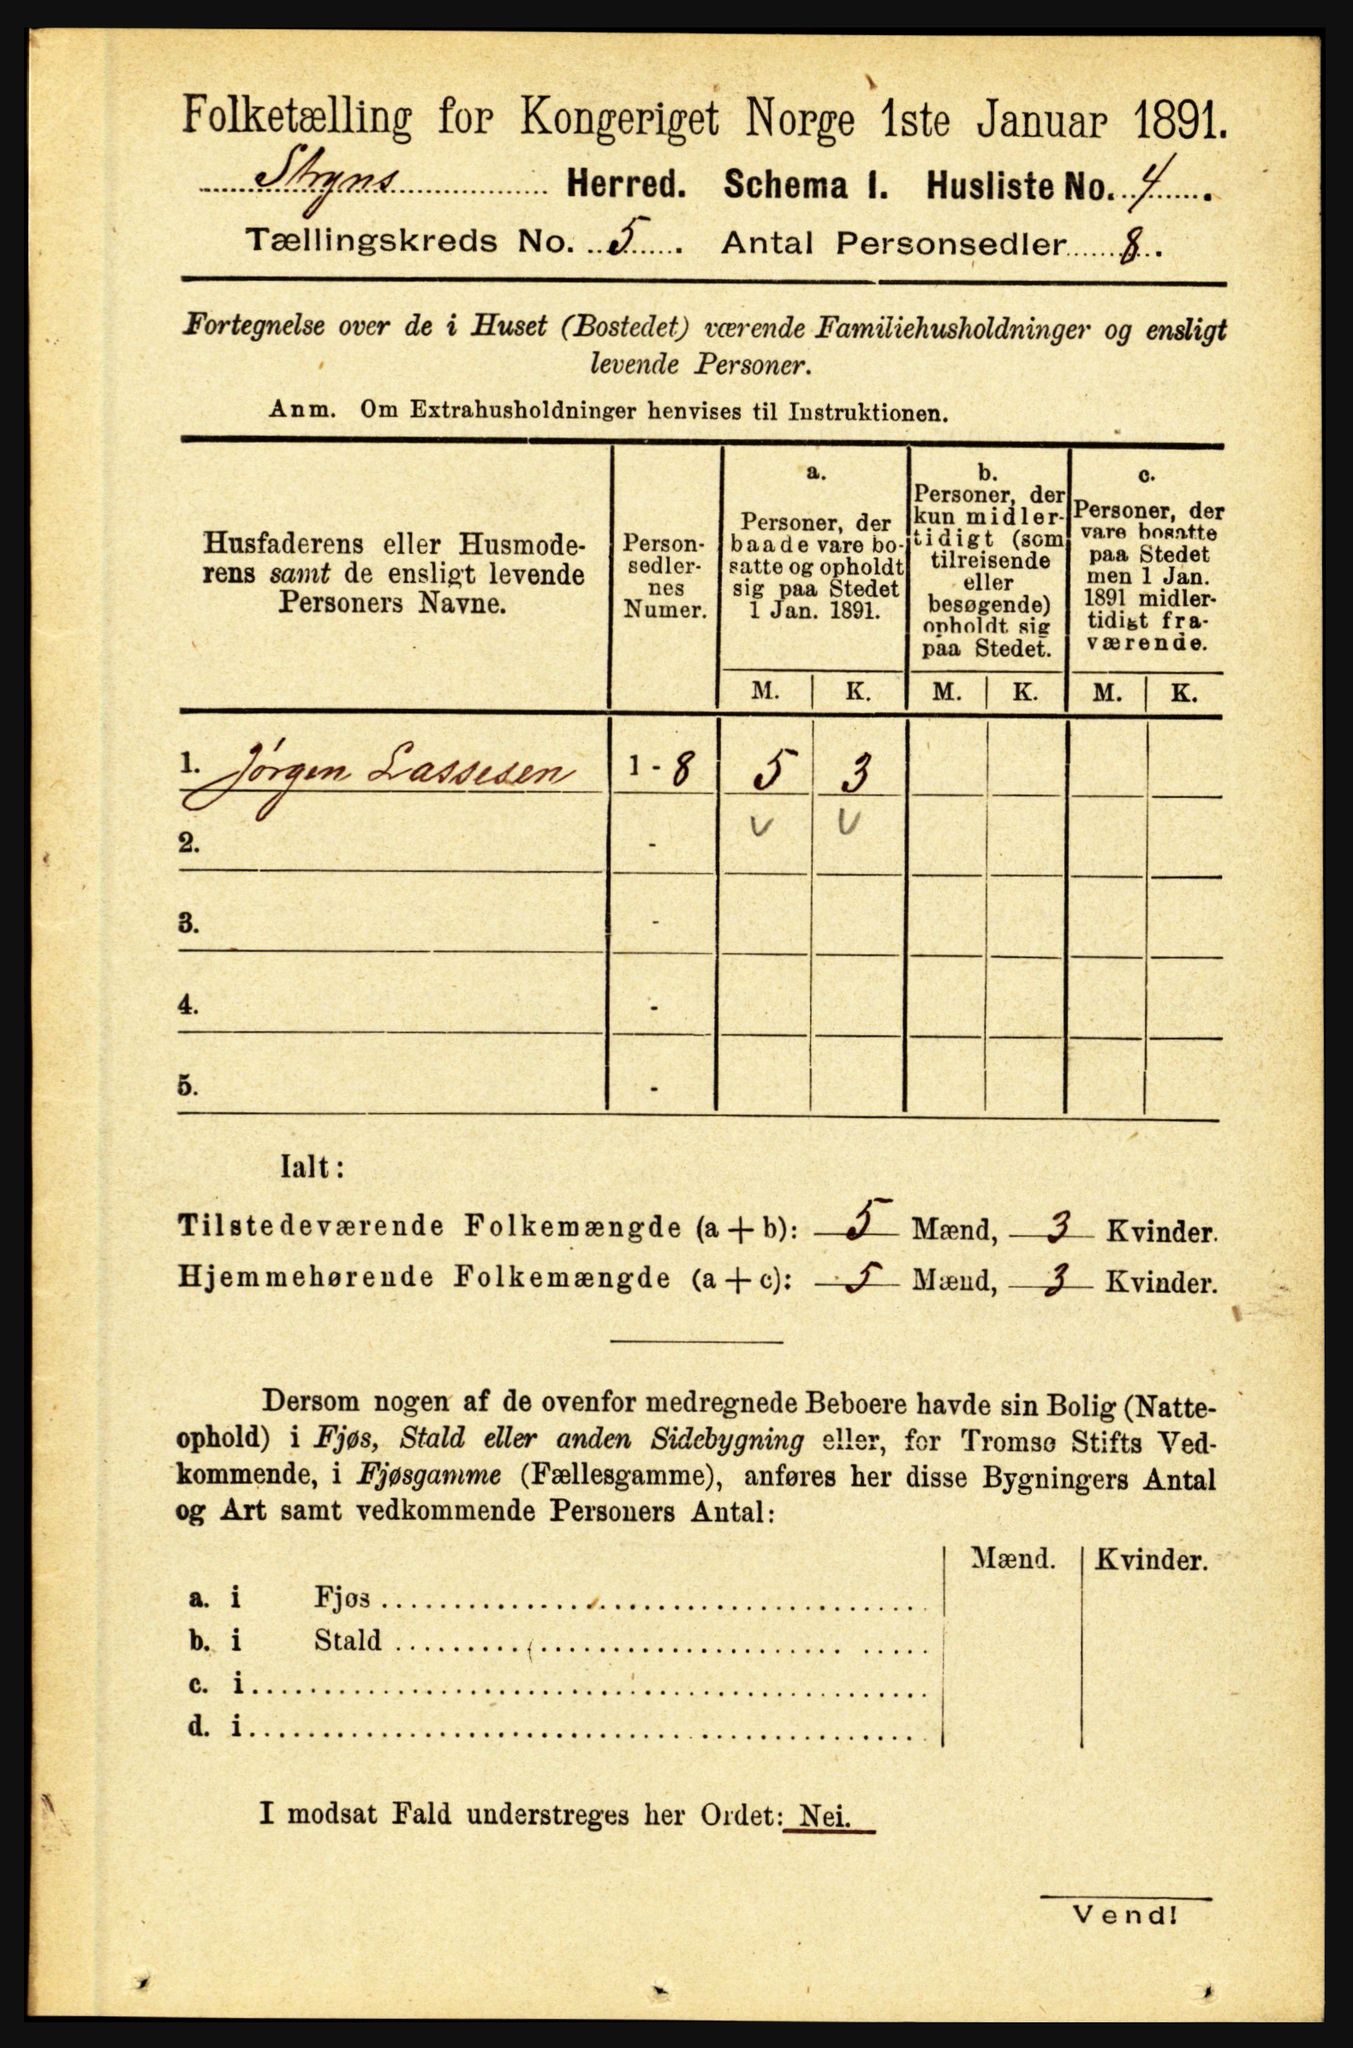 Folketælling for Kongeriget Norge 1ste Januar 1891.
Stryns Herred. Schema I. Husliste No. 4.
Tællingskreds No. 5. Antal Personsedler 8.
Fortegnelse over de i Huset (Bostedet) værende Familiehusholdninger og ensligt
levende Personer.
Anm. Om Extrahusholdninger henvises til Instruktionen.
Husfaderens eller Husmode-
rens samt de ensligt levende
Personers Navne.
Person-
sedler-
nes
Numer.
a.
Personer, der
baade vare bo-
satte og opholdt
sig paa Stedet
1 Jan. 1891.
b.
Personer, der
kun midler-
tidigt (som
tilreisende
eller
besøgende)
opholdt sig
paa Stedet.
c.
Personer, der
vare bosatte
paa Stedet
men 1 Jan.
1891 midler-
tidigt fra-
værende.
M. K. M. K. M. K.
1. Jørgen Lassesen 1 - 8 5 3
v v
2. -
3. -
4. -
5. -
Ialt:
Tilstedeværende Folkemængde (a + b): 5 Mænd, 3 Kvinder.
Hjemmehørende Folkemængde (a + c): 5 Mænd, 3 Kvinder.
Dersom nogen af de ovenfor medregnede Beboere havde sin Bolig (Natte-
ophold) i Fjøs, Stald eller anden Sidebygning eller, for Tromsø Stifts Ved-
kommende, i Fjøsgamme (Fællesgamme), anføres her disse Bygningers Antal
og Art samt vedkommende Personers Antal:
Mænd. Kvinder.
a. i Fjøs
b. i Stald
c. i
d. i
I modsat Fald understreges her Ordet: Nei.
Vend!